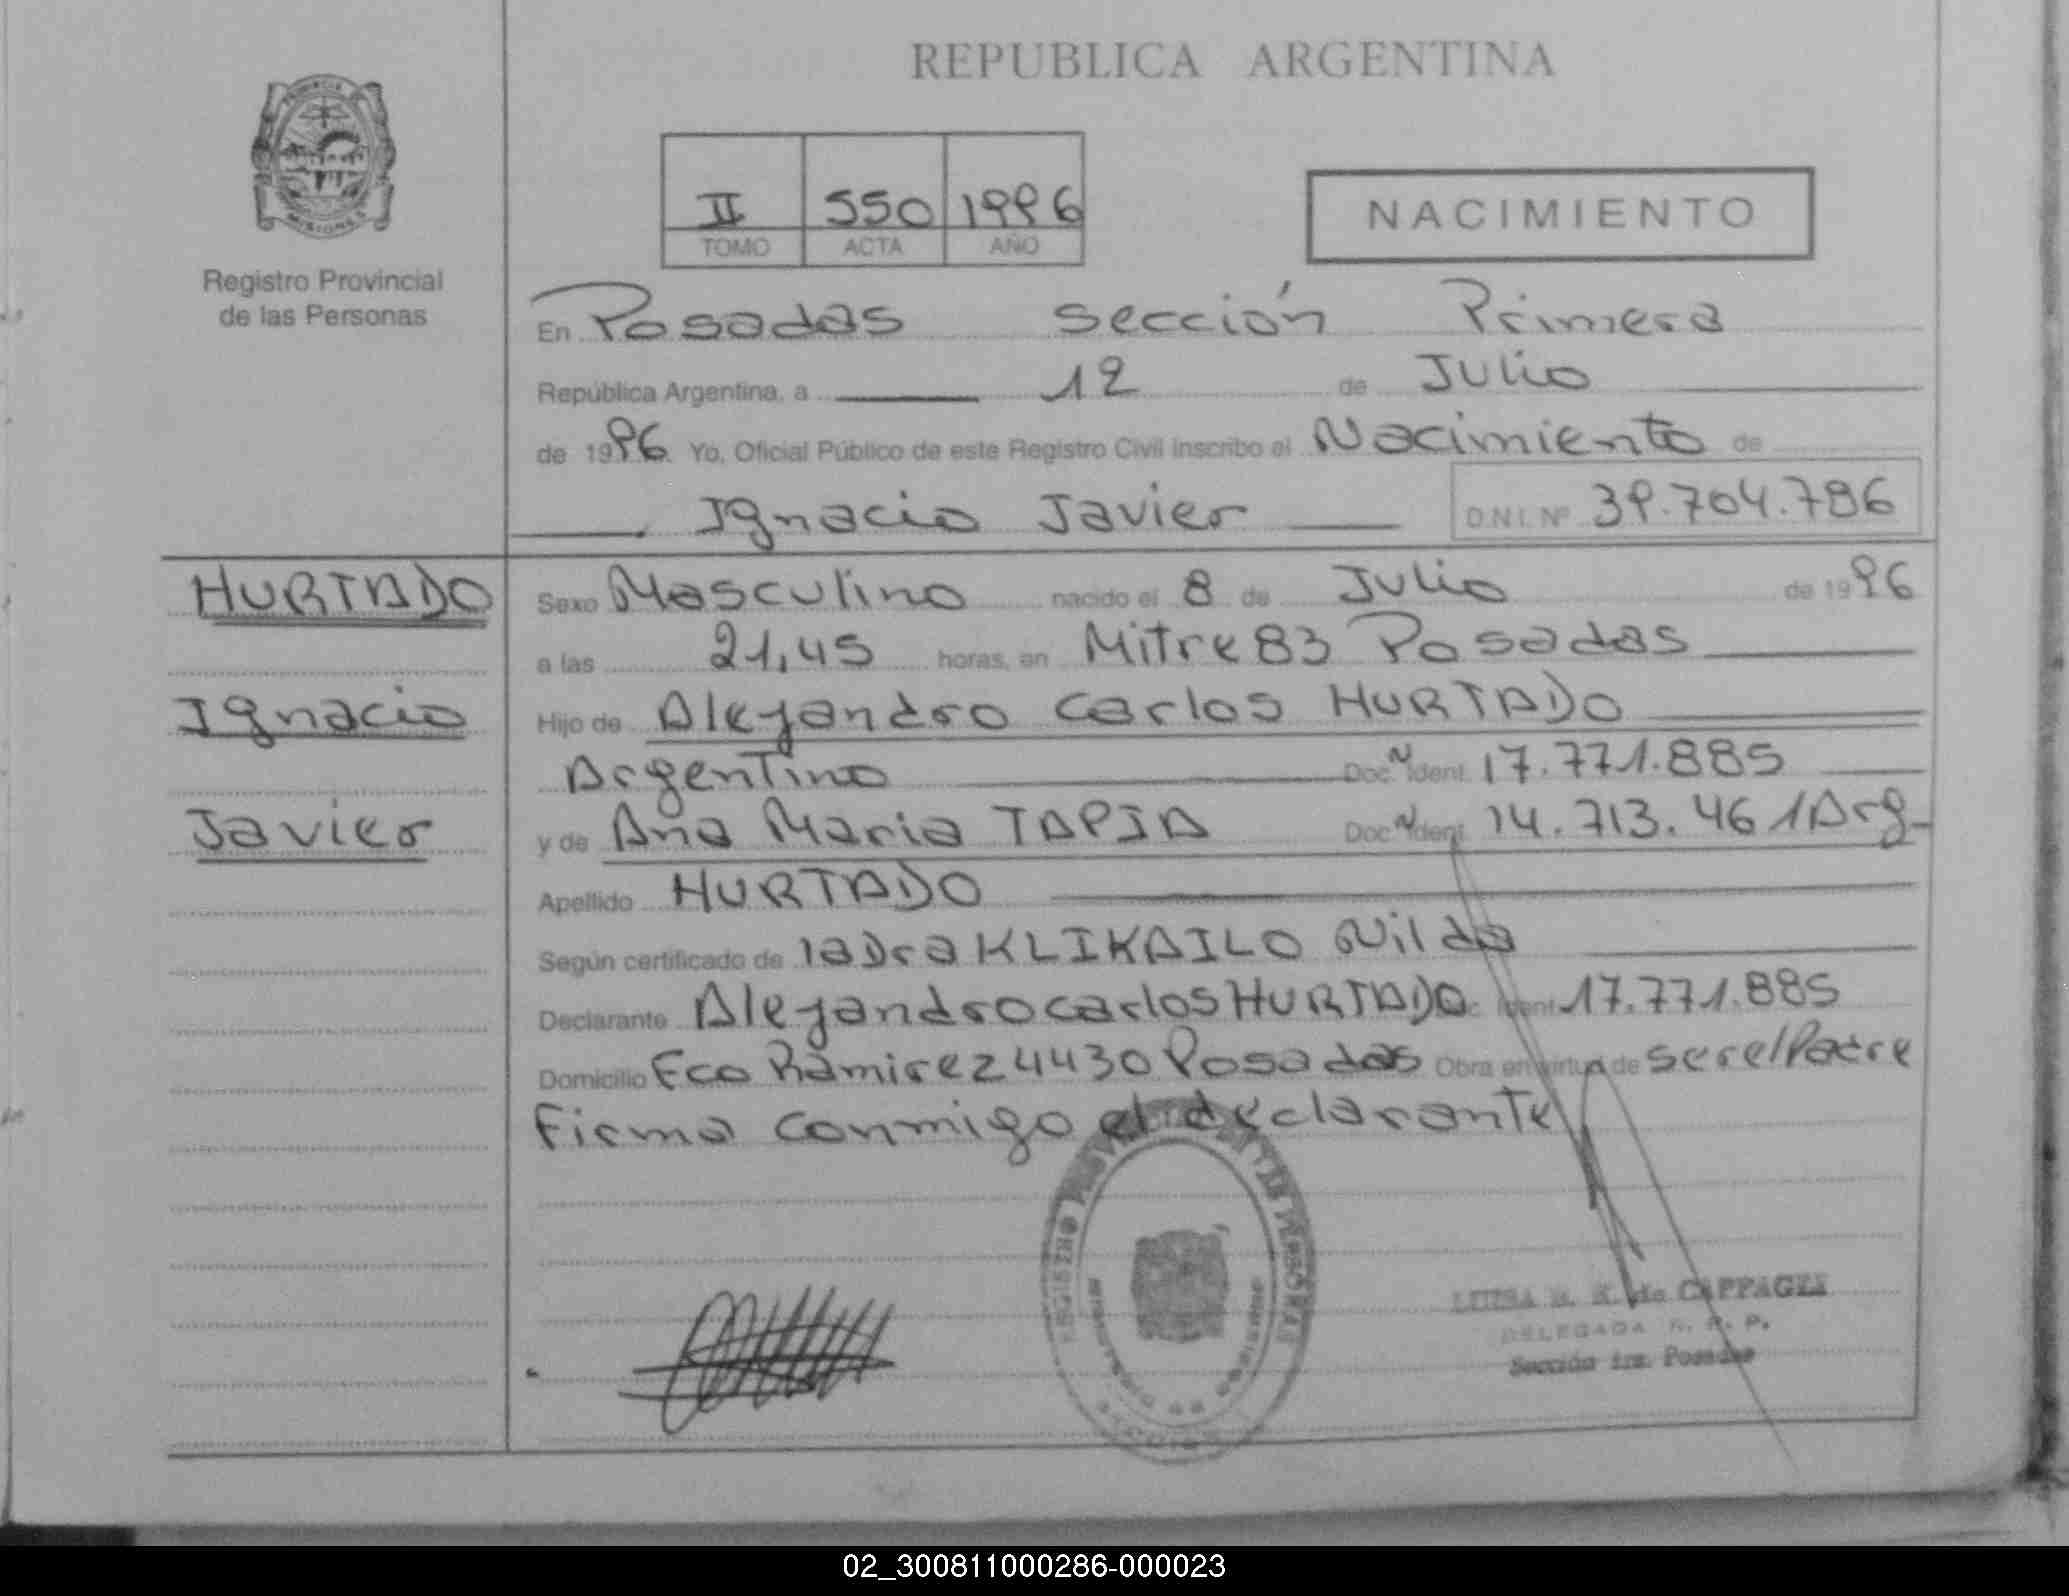 REPUBLICA ARGENTINA
PROVINCIA DE
MISIONES
Registro Provincial
de las Personas
II 550 1996
TOMO ACTA AÑO
NACIMIENTO
En Posadas sección Primera
República Argentina, a 12 de Julio
de 1996 Yo, Oficial Público de este Registro Civil inscribo el Nacimiento de
Ignacio Javier D.N.I. Nº 39.704.786
HURTADO
Ignacio
Javier
Sexo Masculino nacido el 8 de Julio de 1996
a las 21,45 horas, en Mitre 83 Posadas
Hijo de Alejandro Carlos HURTADO
Argentino Doc. Ident. 17.771.885
y de Ana Maria TAPIA Doc. Ident. 14.713.461 Arg.
Apellido HURTADO
Según certificado de la Dra KLIKAILO Nilda
Declarante Alejandro Carlos HURTADO Ident 17.771.885
Domicilio Fco Ramirez 4430 Posadas Obra en virtud de ser el Padre
Firma conmigo el declarante
REGISTRO DE LAS PERSONAS
de CAPPAGLI
DELEGADA R. P. P.
Sección 1ra. Posadas
02_300811000286-000023